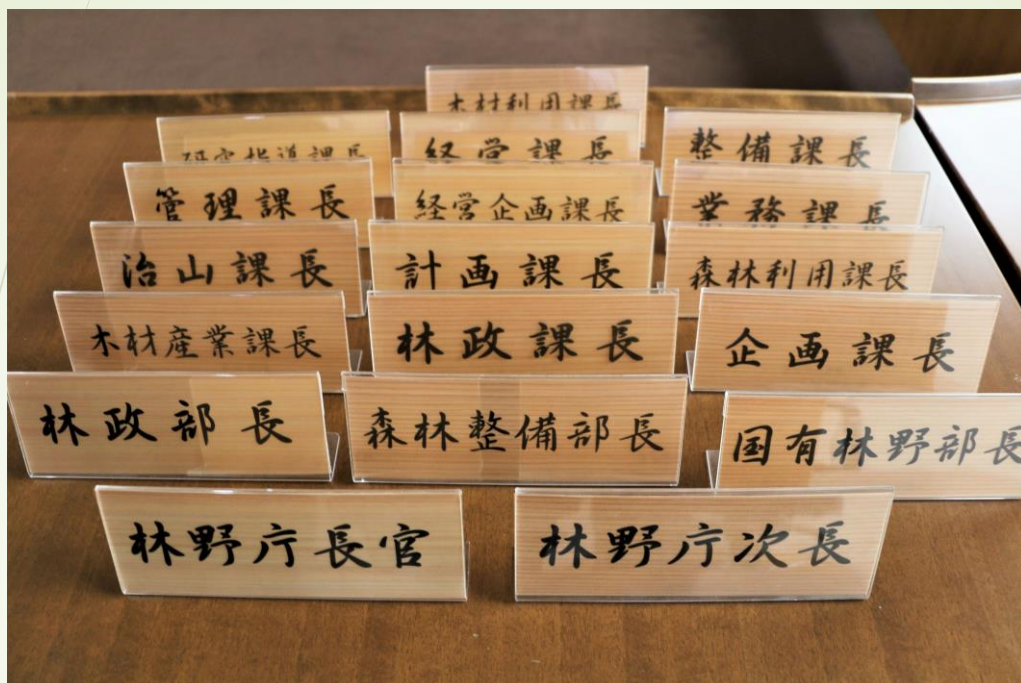 木材利用課長
研究指導課長
経営課長
整備課長
管理課長
経営企画課長
業務課長
治山課長
計画課長
森林利用課長
木材産業課長
林政課長
企画課長
林政部長
森林整備部長
国有林野部長
林野庁長官
林野庁次長